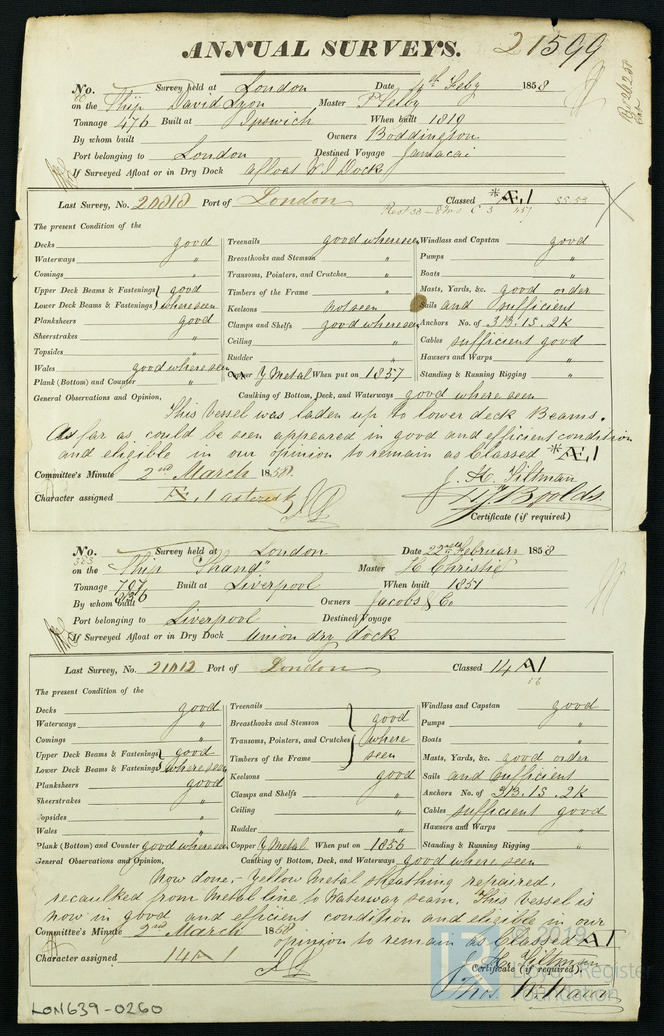 ANNUAL SURVEYS. 21599
No. Survey held at London Date Feby 1858
on the Ship David Lyon Master P Selby
Tonnage 476 Built at Ipswich When built 1819
By whom built Owners Boddington
Port belonging to London Destined Voyage Jamacai
If Surveyed Afloat or in Dry Dock afloat W I Dock
Last Survey, No. 20818 Port of London Classed *Æ.1 55.53
The present Condition of the
Decks good Treenails good where seen Windlass and Capstan good
Waterways " Breasthooks and Stemson " Pumps "
Comings " Transoms, Pointers, and Crutches " Boats "
Upper Deck Beams & Fastenings } good Timbers of the Frame " Masts, Yards, &c. good order
Lower Deck Beams & Fastenings } where seen Keelsons not seen Sails and sufficient
Planksheers good Clamps and Shelfs good where seen Anchors No. of 3B. 1S. 2K
Sheerstrakes " Ceiling " Cables sufficient good
Topsides " Rudder " Hawsers and Warps "
Wales good where seen Copper Y Metal When put on 1857 Standing & Running Rigging "
Plank (Bottom) and Counter " Caulking of Bottom, Deck, and Waterways good where seen
General Observations and Opinion,
This Vessel was laden up to lower deck Beams.
As far as could be seen appeared in good and efficient condition
and eligible in our opinion to remain as Classed *Æ.1
Committee's Minute 2nd March 1858. J. H. Tiltman
Character assigned Æ. 1 asterisk
Certificate (if required)
No. Survey held at London Date 22nd February 1858
383
on the Ship "Shand" Master Christie
Tonnage 707 Built at Liverpool When built 1851
By whom built Owners Jacobs & Co
Port belonging to Liverpool Destined Voyage
If Surveyed Afloat or in Dry Dock Union dry dock
Last Survey, No. 21012 Port of London Classed 14 A1
The present Condition of the
Decks good Treenails } good Windlass and Capstan good
Waterways " Breasthooks and Stemson Pumps "
Comings " Transoms, Pointers, and Crutches where Boats "
Upper Deck Beams & Fastenings } good Timbers of the Frame seen Masts, Yards, &c. good order
Lower Deck Beams & Fastenings } where seen Keelsons good Sails and sufficient
Planksheers good Clamps and Shelfs " Anchors No. of 3B. 1S. 2K
Sheerstrakes " Ceiling " Cables sufficient good
Topsides " Rudder " Hawsers and Warps "
Wales " Copper Y Metal When put on 1856 Standing & Running Rigging "
Plank (Bottom) and Counter good where seen Caulking of Bottom, Deck, and Waterways good where seen
General Observations and Opinion,
Now done,- Yellow Metal sheathing repaired,
recaulked from Metal line to Waterway seam. This Vessel is
now in good and efficient condition and eligible in our
Committee's Minute 2nd March 1858 opinion to remain as Classed A1
Character assigned 14 A 1 J. H. Tiltman
Certificate (if required)
© 2019
Lloyd's Register
Foundation
LON639-0260